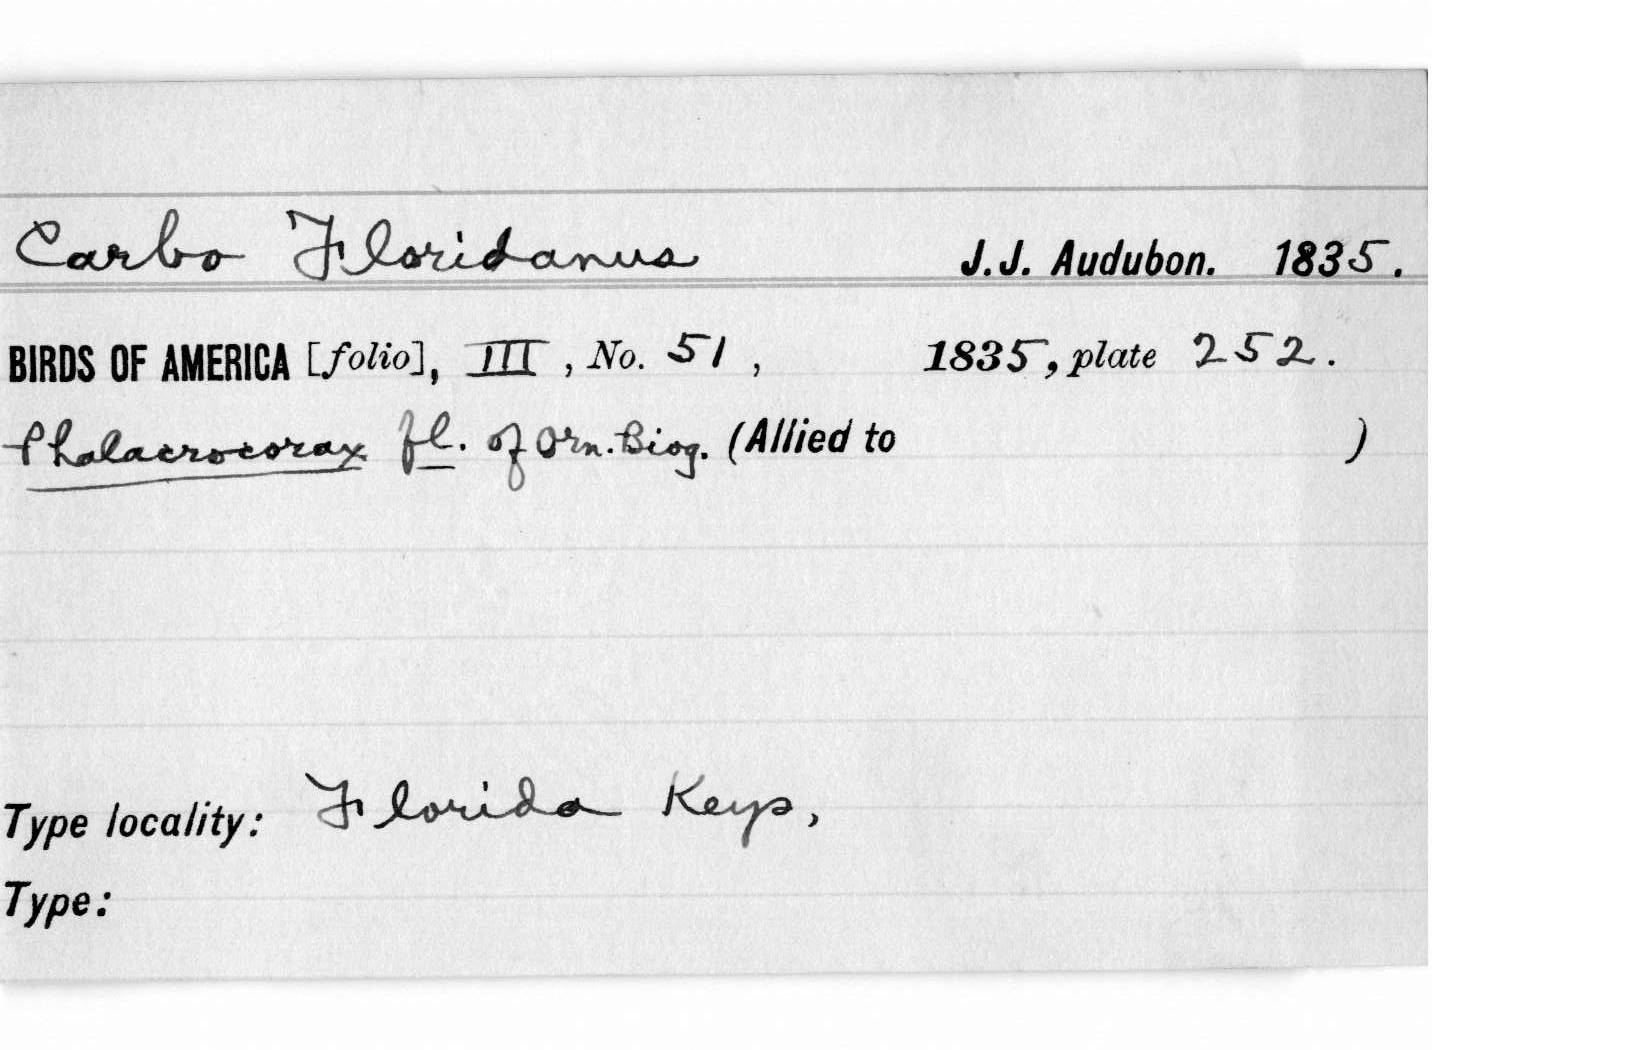 Carbo Floridanus J.J. Audubon. 1835.
BIRDS OF AMERICA [folio], III, No. 51, 1835, plate 252.
Phalacrocorax fl. of Orn. Biog. (Allied to )
Type locality: Florida Keys,
Type: